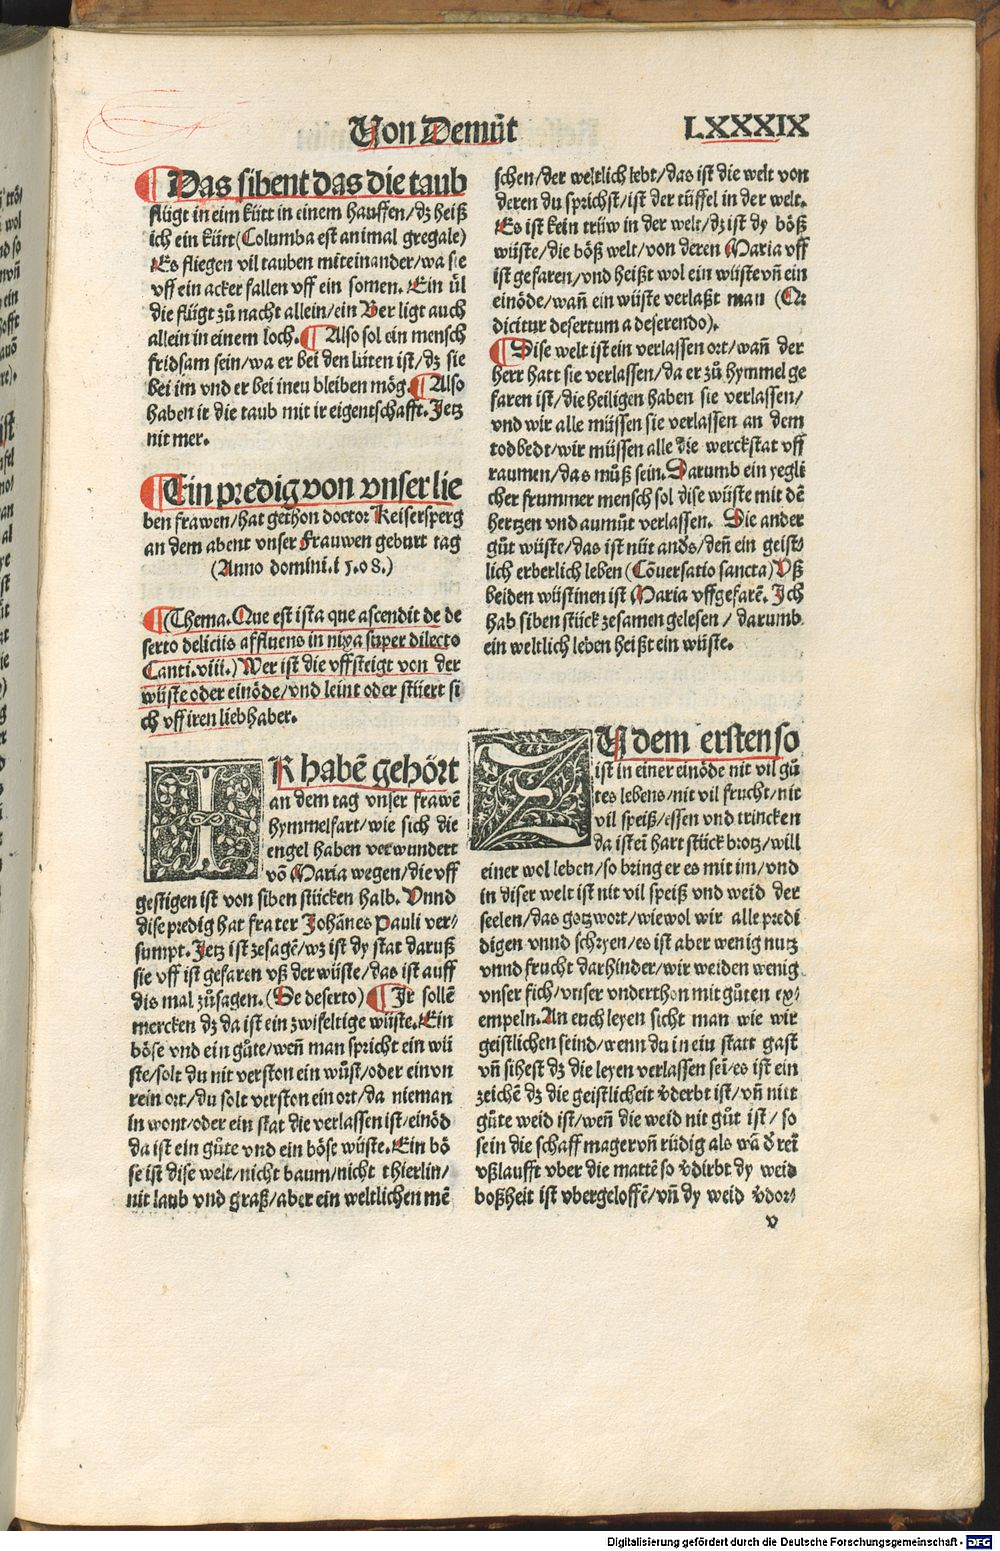 Von Demůt
LXXXIX
Das sibent das die taub
flügt in eim kütt in einem hauffen/dz heiß
ich ein kütt (Columba est animal gregale)
Es fliegen vil tauben miteinander/wa sie
vff ein acker fallen vff ein somen. Ein ül
die flügt zů nacht allein/ein Ber ligt auch
allein in einem loch. ¶ Also sol ein mensch
fridsam sein/wa er bei den lüten ist/dz sie
bei im vnd er bei ineu bleiben mög. ¶ Also
haben ir die taub mit ir eigentschafft. Jetz
nit mer.
¶ Ein predig von vnser lie
ben frawen/hat gethon doctor Keisersperg
an dem abent vnser Frauwen geburt tag
(Anno domini. i 5.08.)
¶ (Thema. Que est ista que ascendit de de
serto deliciis affluens in nixa super dilecto
Canti. viii.) Wer ist die vffsteigt von der
wüste oder einöde/vnd leint oder stüert si
ch vff iren liebhaber.
IR habē gehört
an dem tag vnser frawē
hymmelfart/wie sich die
engel haben verwundert
vō Maria wegen/die vff
gestigen ist von siben stücken halb. Vnnd
dise predig hat frater Johānes Pauli ver⸗
sumpt. Jetz ist zesagē/wz ist dy stat daruß
sie vff ist gefaren vß der wüste/das ist auff
dis mal zůsagen. (De deserto) ¶ Ir sollē
mercken dz da ist ein zwifeltige wüste. Ein
böse vnd ein gůte/weñ man spricht ein wü
ste/solt du nit verston ein wůst/oder ein vn
rein ort/du solt verston ein ort/da nieman
in wont/oder ein stat die verlassen ist/einöd
da ist ein gůte vnd ein böse wüste. Ein bö
se ist dise welt/nicht baum/nicht thierlin/
nit laub vnd graß/aber ein weltlichen mē
schen/der weltlich lebt/das ist die welt von
deren du sprichst/ist der tüffel in der welt.
Es ist kein trüw in der welt/dz ist dy böß
wüste/die böß welt/von deren Maria vff
ist gefaren/vnd heißt wol ein wüste vñ ein
einöde/wañ ein wüste verlaßt man (Et
dicitur desertum a deserendo).
¶ Dise welt ist ein verlassen ort/wañ der
herr hatt sie verlassen/da er zů hymmel ge
faren ist/die heiligen haben sie verlassen/
vnd wir alle müssen sie verlassen an dem
todbedt/wir müssen alle die werckstat vff
raumen/das můß sein. Darumb ein yegli
cher frummer mensch sol dise wüste mit dē
hertzen vnd aumůt verlassen. Die ander
gůt wüste/das ist nüt anders/deñ ein geist⸗
lich erberlich leben (Cōuersatio sancta) Vß
beiden wüstinen ist Maria vffgefarē. Ich
hab siben stück zesamen gelesen/darumb
ein weltlich leben heißt ein wüste.
ZU dem ersten so
ist in einer einöde nit vil gů
tes lebens/nit vil frucht/nit
vil speiß/essen vnd trincken
da ist eī hart stück brotz/will
einer wol leben/so bring er es mit im/vnd
in diser welt ist nit vil speiß vnd weid der
seelen/das gotzwort/wiewol wir alle predi
digen vnnd schryen/es ist aber wenig nutz
vnnd frucht darhinder/wir weiden wenig
vnser fich/vnser vnderthon mit gůten ex⸗
empeln. An euch leyen sicht man wie wir
geistlichen seind/wenn du in ein statt gast
vñ sihest dz die leyen verlassen seī/es ist ein
zeichē dz die geistlicheit v̄derbt ist/vñ nitt
gůte weid ist/weñ die weid nit gůt ist/so
sein die schaff mager vñ rüdig als wā d̄ reī
vßlaufft vber die mattē so v̄dirbt dy weid
boßheit ist vbergeloffē/vñ dy weid v̄dor⸗
v
Digitalisierung gefördert durch die Deutsche Forschungsgemeinschaft - DFG